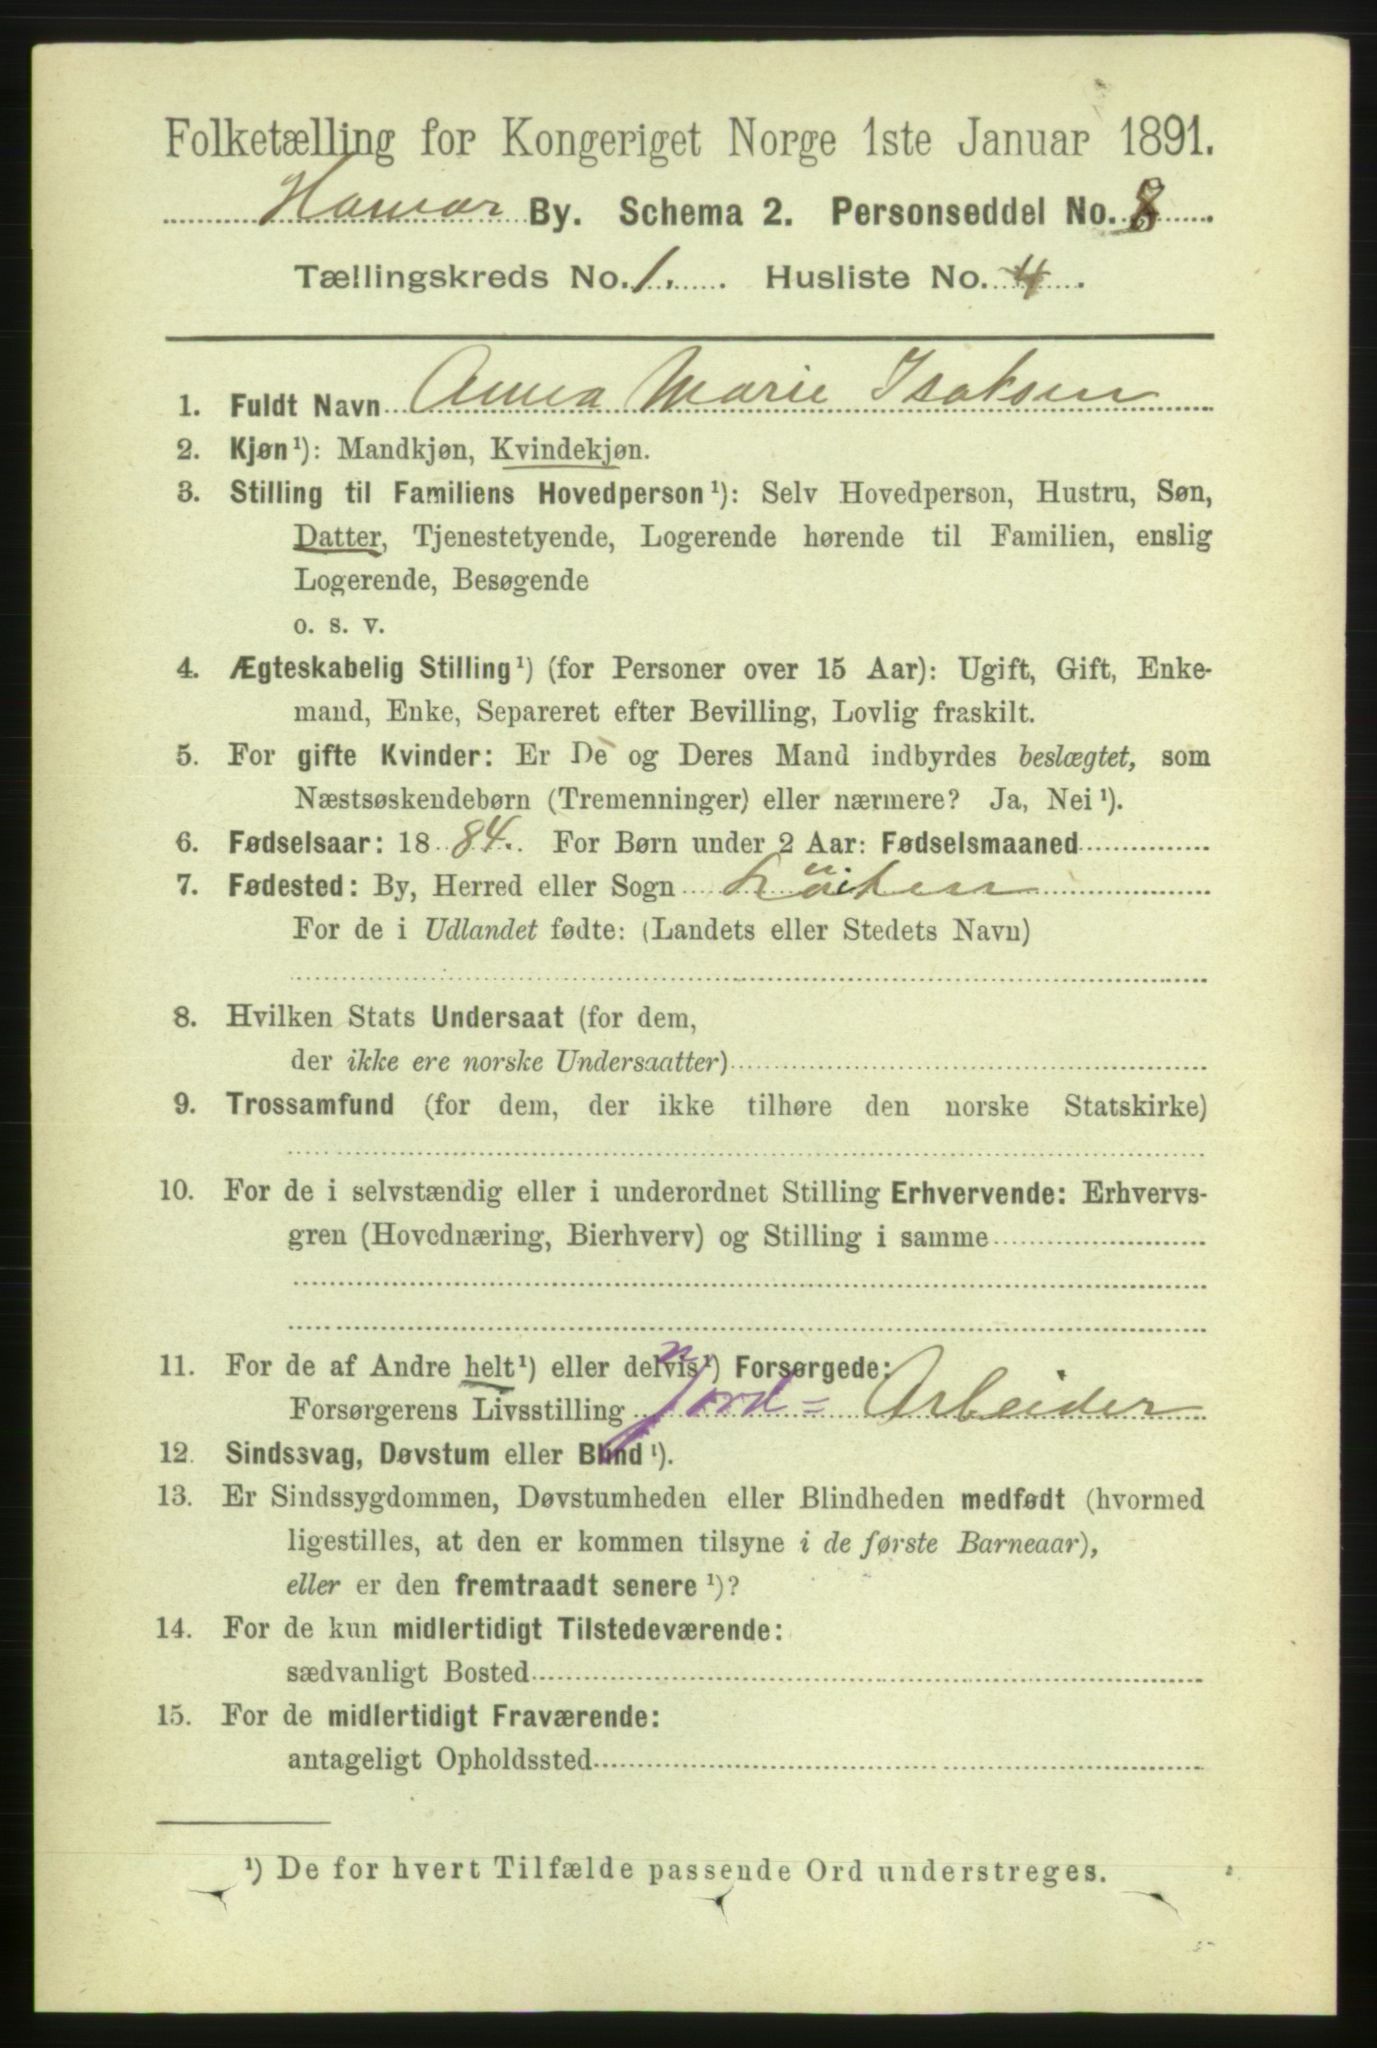 Folketælling for Kongeriget Norge 1ste Januar 1891.
Hamar By. Schema 2. Personseddel No. 8
Tællingskreds No. 1. Husliste No. 4
1. Fuldt Navn Anna Marie Isaksen
2. Kjøn¹): Mandkjøn, Kvindekjøn.
3. Stilling til Familiens Hovedperson¹): Selv Hovedperson, Hustru, Søn,
Datter, Tjenestetyende, Logerende hørende til Familien, enslig
Logerende, Besøgende
o. s. v.
4. Ægteskabelig Stilling¹) (for Personer over 15 Aar): Ugift, Gift, Enke-
mand, Enke, Separeret efter Bevilling, Lovlig fraskilt.
5. For gifte Kvinder: Er De og Deres Mand indbyrdes beslægtet, som
Næstsøskendebørn (Tremenninger) eller nærmere? Ja, Nei¹).
6. Fødselsaar: 1884. For Børn under 2 Aar: Fødselsmaaned
7. Fødested: By, Herred eller Sogn Löiten
For de i Udlandet fødte: (Landets eller Stedets Navn)
8. Hvilken Stats Undersaat (for dem,
der ikke ere norske Undersaatter)
9. Trossamfund (for dem, der ikke tilhøre den norske Statskirke)
10. For de i selvstændig eller i underordnet Stilling Erhvervende: Erhvervs-
gren (Hovednæring, Bierhverv) og Stilling i samme
11. For de af Andre helt¹) eller delvis¹) Forsørgede:
Forsørgerens Livsstilling Jord= Arbeider
12. Sindssvag, Døvstum eller Blind¹).
13. Er Sindssygdommen, Døvstumheden eller Blindheden medfødt (hvormed
ligestilles, at den er kommen tilsyne i de første Barneaar),
eller er den fremtraadt senere¹)?
14. For de kun midlertidigt Tilstedeværende:
sædvanligt Bosted
15. For de midlertidigt Fraværende:
antageligt Opholdssted
¹) De for hvert Tilfælde passende Ord understreges.